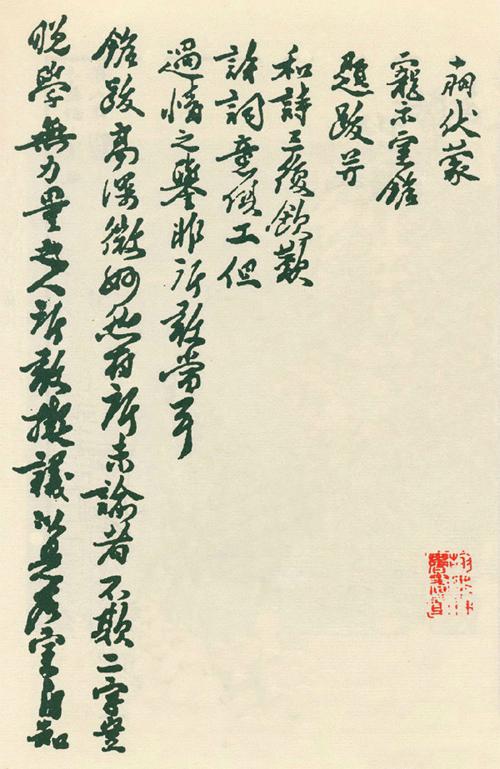 伏蒙
寵示室銘
題跋并
和詩三復欽歎
詩詞意俱工但
過情之譽非所敢當耳
銘跋高深微妙然有所未諭者不欺二字豈
晚學無力量之人所敢擬議以是室自知